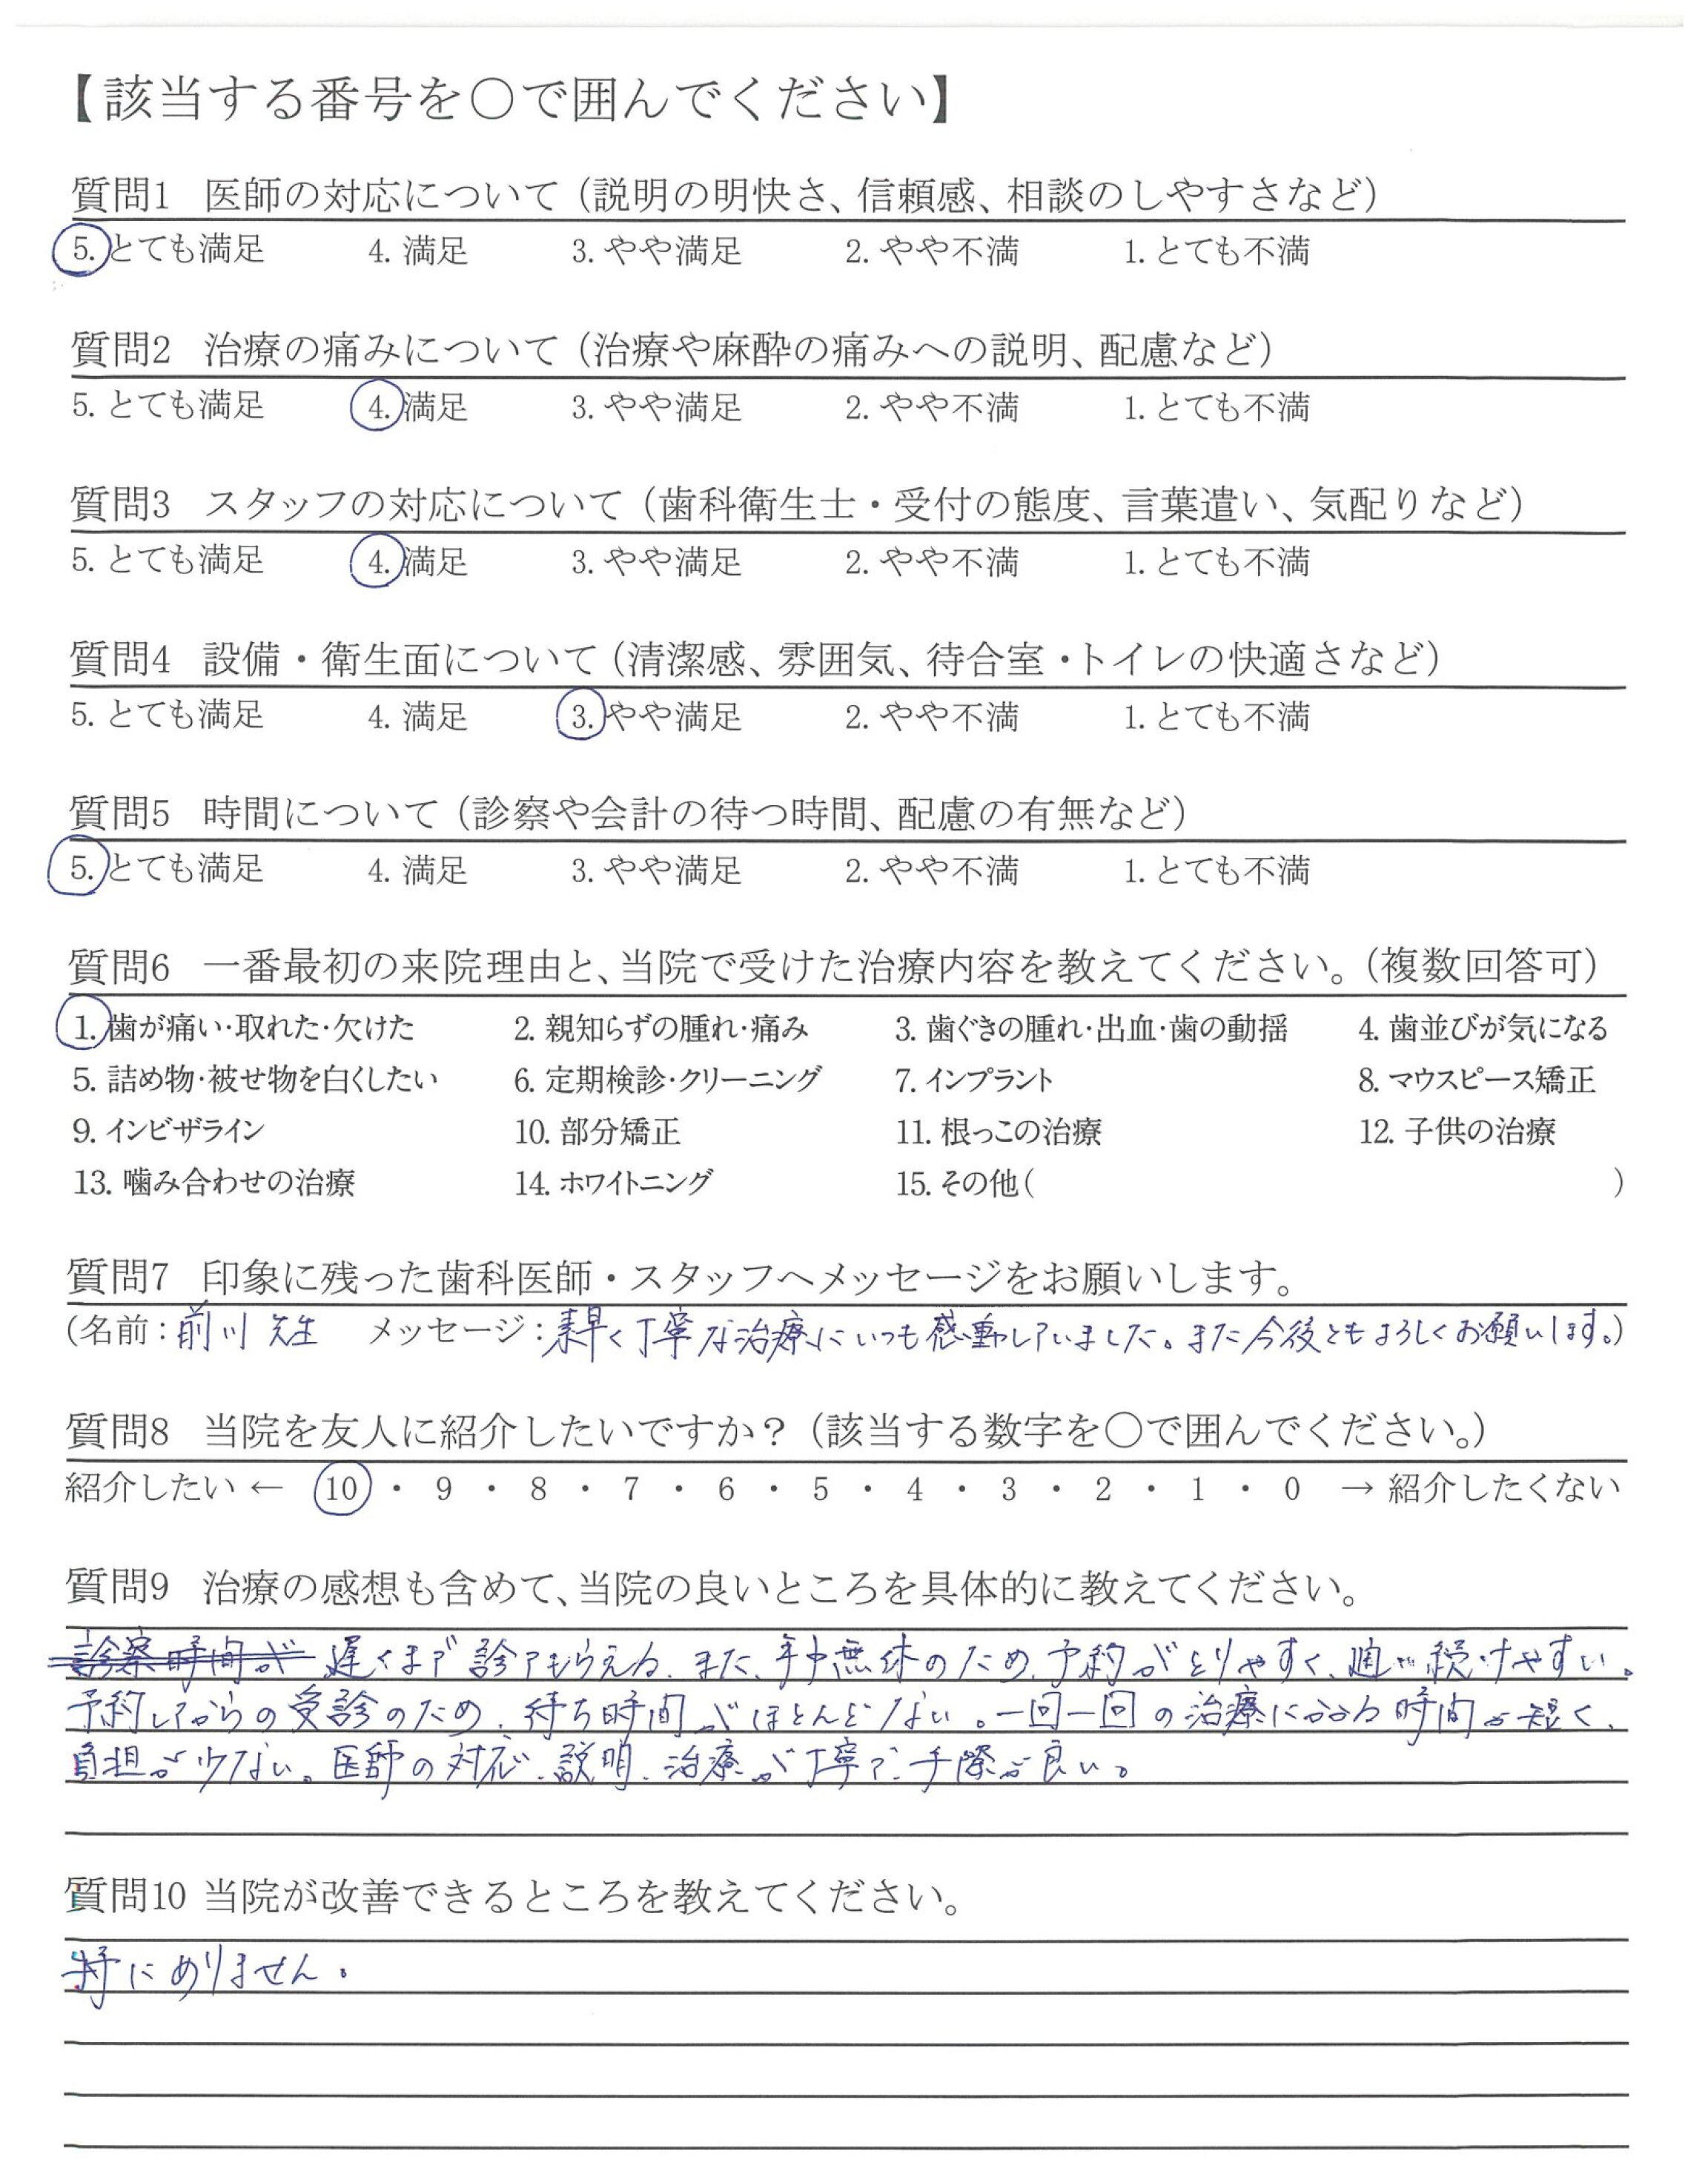 【該当する番号を○で囲んでください】
質問1 医師の対応について（説明の明快さ、信頼感、相談のしやすさなど）
5. とても満足 4. 満足 3. やや満足 2. やや不満 1. とても不満
質問2 治療の痛みについて（治療や麻酔の痛みへの説明、配慮など）
5. とても満足 4. 満足 3. やや満足 2. やや不満 1. とても不満
質問3 スタッフの対応について（歯科衛生士・受付の態度、言葉遣い、気配りなど）
5. とても満足 4. 満足 3. やや満足 2. やや不満 1. とても不満
質問4 設備・衛生面について（清潔感、雰囲気、待合室・トイレの快適さなど）
5. とても満足 4. 満足 3. やや満足 2. やや不満 1. とても不満
質問5 時間について（診察や会計の待つ時間、配慮の有無など）
5. とても満足 4. 満足 3. やや満足 2. やや不満 1. とても不満
質問6 一番最初の来院理由と、当院で受けた治療内容を教えてください。（複数回答可）
1. 歯が痛い・取れた・欠けた 2. 親知らずの腫れ・痛み 3. 歯ぐきの腫れ・出血・歯の動揺 4. 歯並びが気になる
5. 詰め物・被せ物を白くしたい 6. 定期検診・クリーニング 7. インプラント 8. マウスピース矯正
9. インビザライン 10. 部分矯正 11. 根っこの治療 12. 子供の治療
13. 噛み合わせの治療 14. ホワイトニング 15. その他（ ）
質問7 印象に残った歯科医師・スタッフへメッセージをお願いします。
（名前：前川先生 メッセージ：素早く丁寧な治療にいつも感動していました。また今後ともよろしくお願いします。）
質問8 当院を友人に紹介したいですか？（該当する数字を○で囲んでください。）
紹介したい ← 10 ・ 9 ・ 8 ・ 7 ・ 6 ・ 5 ・ 4 ・ 3 ・ 2 ・ 1 ・ 0 → 紹介したくない
質問9 治療の感想も含めて、当院の良いところを具体的に教えてください。
診察時間が 遅くまで診てもらえる、また、年中無休のため、予約がとりやすく、通い続けやすい。
予約してからの受診のため、待ち時間がほとんどない。一回一回の治療にかかる時間も短く、
負担が少ない。医師の対応、説明、治療が丁寧で、手際が良い。
質問10 当院が改善できるところを教えてください。
特にありません。